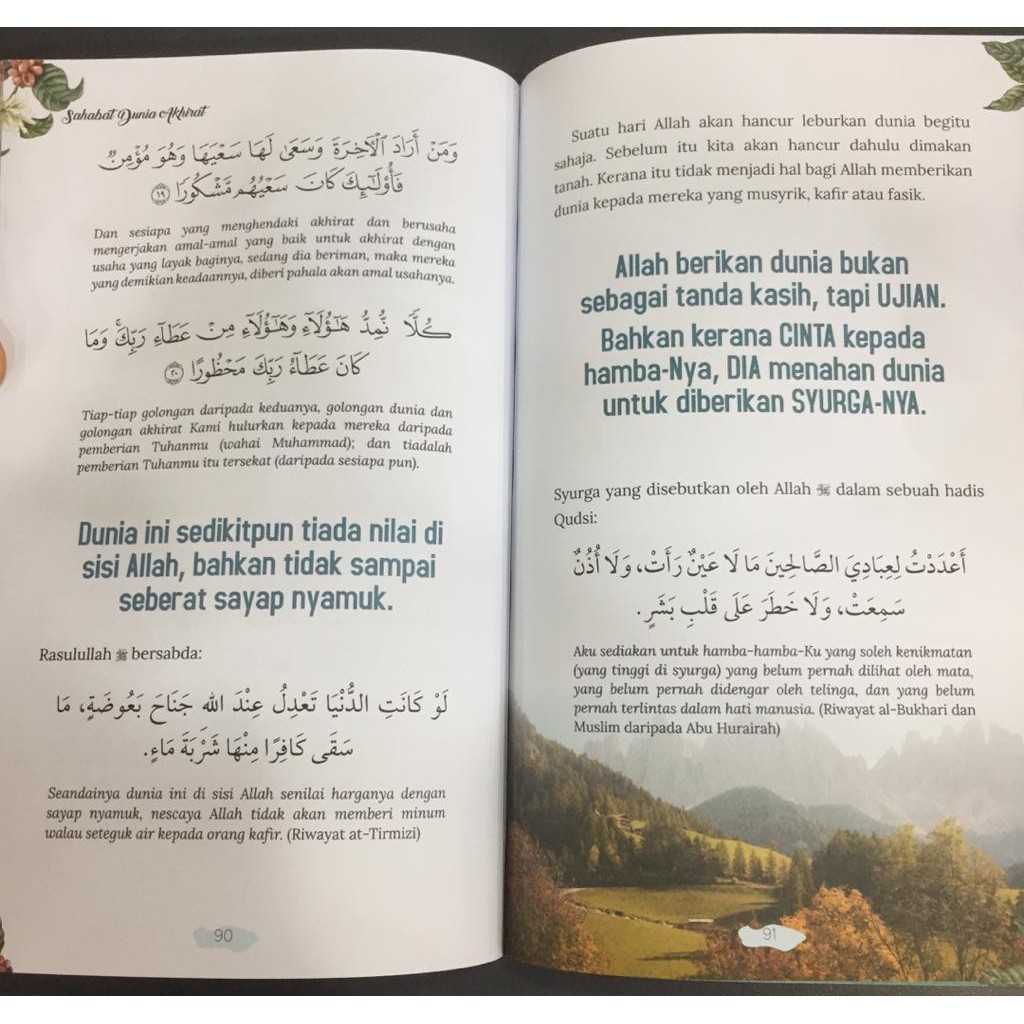 Sahabat Dunia Akhirat
وَمَنْ أَرَادَ ٱلْآخِرَةَ وَسَعَىٰ لَهَا سَعْيَهَا وَهُوَ مُؤْمِنٌ
فَأُو۟لَٰٓئِكَ كَانَ سَعْيُهُم مَّشْكُورًا ١٩
Dan sesiapa yang menghendaki akhirat dan berusaha
mengerjakan amal-amal yang baik untuk akhirat dengan
usaha yang layak baginya, sedang dia beriman, maka mereka
yang demikian keadaannya, diberi pahala akan amal usahanya.
كُلًّا نُّمِدُّ هَٰٓؤُلَآءِ وَهَٰٓؤُلَآءِ مِنْ عَطَآءِ رَبِّكَ ۚ وَمَا
كَانَ عَطَآءُ رَبِّكَ مَحْظُورًا ٢٠
Tiap-tiap golongan daripada keduanya, golongan dunia dan
golongan akhirat Kami hulurkan kepada mereka daripada
pemberian Tuhanmu (wahai Muhammad); dan tiadalah
pemberian Tuhanmu itu tersekat (daripada sesiapa pun).
Dunia ini sedikitpun tiada nilai di
sisi Allah, bahkan tidak sampai
seberat sayap nyamuk.
Rasulullah ﷺ bersabda:
لَوْ كَانَتِ الدُّنْيَا تَعْدِلُ عِنْدَ اللهِ جَنَاحَ بَعُوضَةٍ، مَا
سَقَى كَافِرًا مِنْهَا شَرْبَةَ مَاءٍ.
Seandainya dunia ini di sisi Allah senilai harganya dengan
sayap nyamuk, nescaya Allah tidak akan memberi minum
walau seteguk air kepada orang kafir. (Riwayat at-Tirmizi)
90
Suatu hari Allah akan hancur leburkan dunia begitu
sahaja. Sebelum itu kita akan hancur dahulu dimakan
tanah. Kerana itu tidak menjadi hal bagi Allah memberikan
dunia kepada mereka yang musyrik, kafir atau fasik.
Allah berikan dunia bukan
sebagai tanda kasih, tapi UJIAN.
Bahkan kerana CINTA kepada
hamba-Nya, DIA menahan dunia
untuk diberikan SYURGA-NYA.
Syurga yang disebutkan oleh Allah dalam sebuah hadis
Qudsi:
أَعْدَدْتُ لِعِبَادِيَ الصَّالِحِينَ مَا لَا عَيْنٌ رَأَتْ، وَلَا أُذُنٌ
سَمِعَتْ، وَلَا خَطَرَ عَلَى قَلْبِ بَشَرٍ.
Aku sediakan untuk hamba-hamba-Ku yang soleh kenikmatan
(yang tinggi di syurga) yang belum pernah dilihat oleh mata,
yang belum pernah didengar oleh telinga, dan yang belum
pernah terlintas dalam hati manusia. (Riwayat al-Bukhari dan
Muslim daripada Abu Hurairah)
91